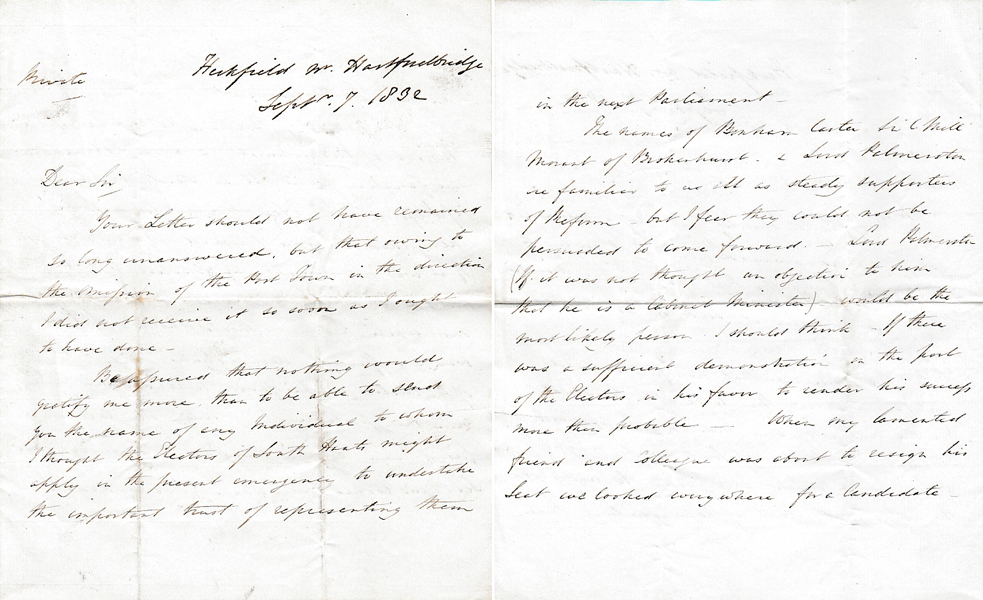 Private
Heckfield nr. Hartfordbridge
Septr. 7. 1832
Dear Sir
Your Letter should not have remained
so long unanswered, but that owing to
the omission of the Post Town in the direction
I did not receive it so soon as I ought
to have done -
Be assured that nothing would
gratify me more than to be able to send
you the name of any Individual to whom
I thought the Electors of South Hants might
apply in the present emergency to undertake
the important trust of representing them
in the next Parliament -
The names of Bonham Carter Sir C Mill
Morant of Brokenhurst. & Lord Palmerston
are familiar to us all as steady supporters
of Reform - but I fear they could not be
persuaded to come forward. - Lord Palmerston
(If it was not thought an objection to him
that he is a Cabinet Minister) would be the
most likely person I should think - If there
was a sufficient demonstration on the part
of the Electors in his favor to render his success
more than probable - When my lamented
friend and Colleague was about to resign his
Seat we looked everywhere for a Candidate -